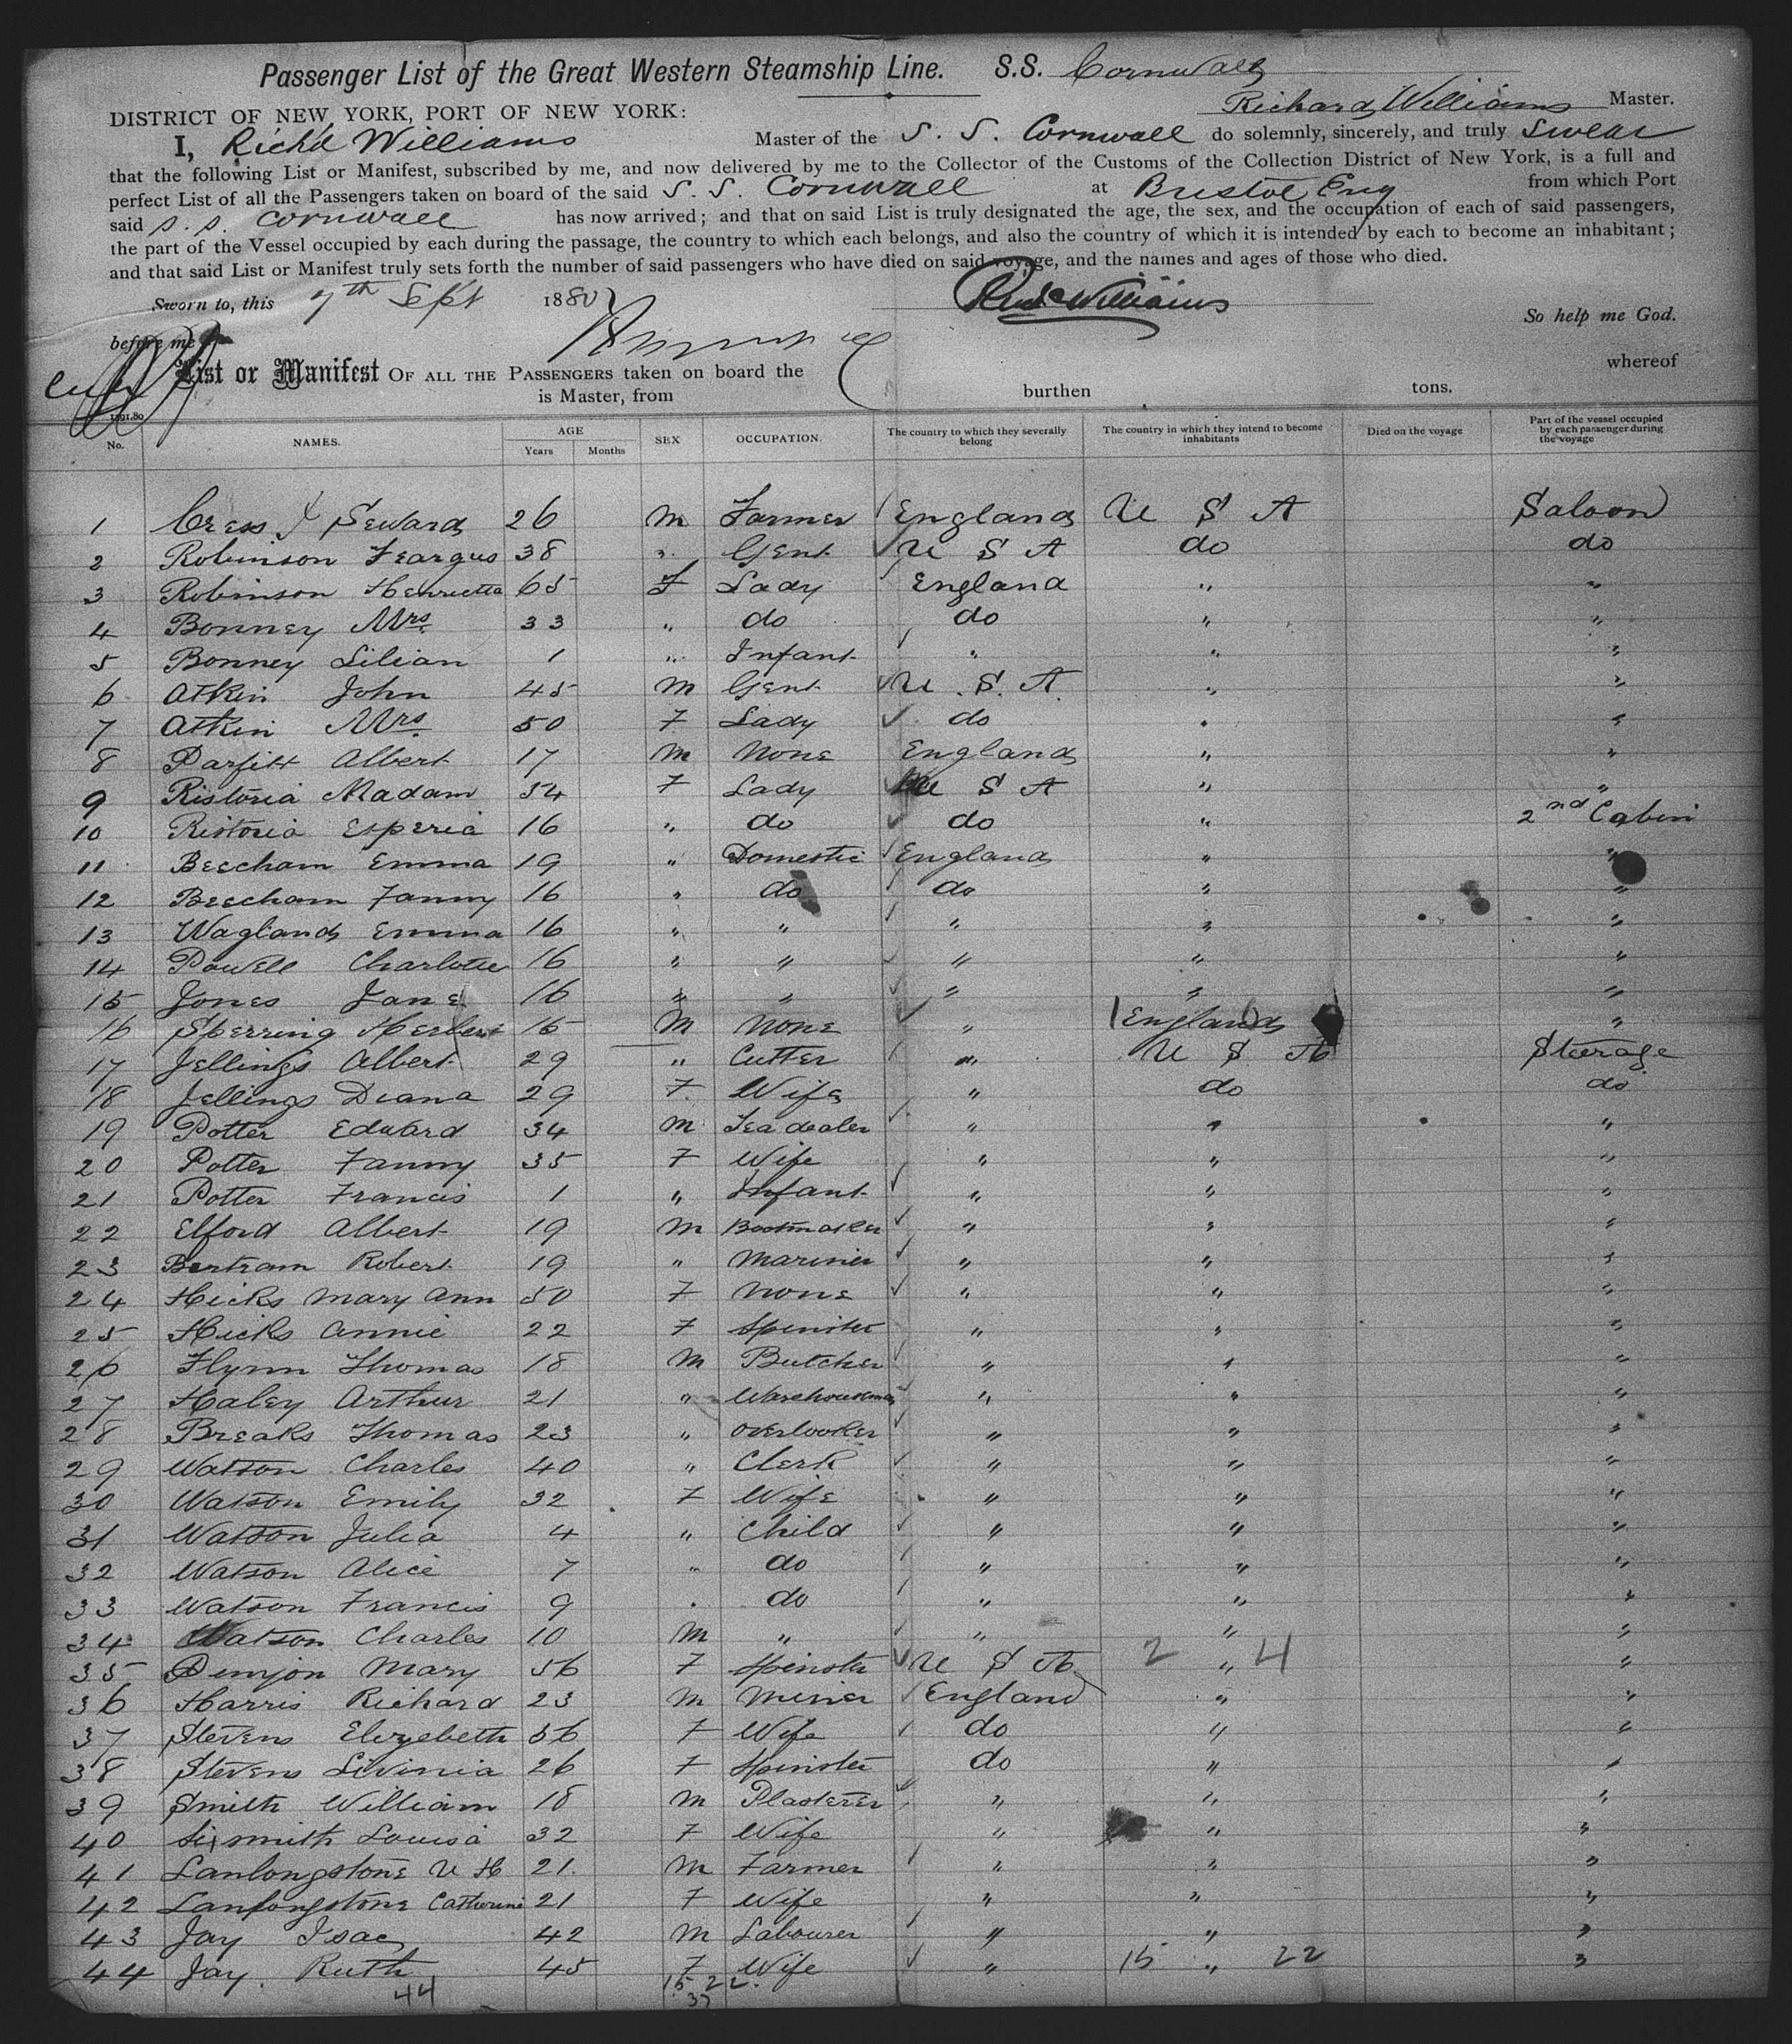 Passenger List of the Great Western Steamship Line. S.S. Cornwall
DISTRICT OF NEW YORK, PORT OF NEW YORK: Richard Williams Master.
I, Richd Williams Master of the S. S. Cornwall do solemnly, sincerely, and truly swear
that the following List or Manifest, subscribed by me, and now delivered by me to the Collector of the Customs of the Collection District of New York, is a full and
perfect List of all the Passengers taken on board of the said S. S. Cornwall at Bristol Eng from which Port
said S. S. Cornwall has now arrived; and that on said List is truly designated the age, the sex, and the occupation of each of said passengers,
the part of the Vessel occupied by each during the passage, the country to which each belongs, and also the country of which it is intended by each to become an inhabitant;
and that said List or Manifest truly sets forth the number of said passengers who have died on said voyage, and the names and ages of those who died.
Sworn to, this 7th Sept 1880 Richd Williams So help me God.
before me
List or Manifest OF ALL THE PASSENGERS taken on board the whereof
is Master, from burthen tons.
No. NAMES. AGE Years Months SEX OCCUPATION. The country to which they severally belong The country in which they intend to become inhabitants Died on the voyage Part of the vessel occupied by each passenger during the voyage
1 Cress J Seward 26 M Farmer England U S A Saloon
2 Robinson Feargus 38 " Gent U S A do do
3 Robinson Henrietta 65 F Lady England " "
4 Bonney Mrs. 33 " do do " "
5 Bonney Lilian 1 " Infant " " "
6 Atkin John 45 M Gent U. S. A. " "
7 Atkin Mrs. 50 F Lady do " "
8 Parfitt Albert 17 M None England " "
9 Ristoria Madam 54 F Lady U S A " "
10 Ristoria Esperia 16 " do do " 2nd Cabin
11 Beecham Emma 19 " Domestic England " "
12 Beecham Fanny 16 " do do " "
13 Waglands Emma 16 " " " " "
14 Powell Charlotte 16 " " " " "
15 Jones Jane 16 " " " " "
16 Sperring Herbert 15 M None " England "
17 Jellings Albert 29 " Cutter " U S A Steerage
18 Jellings Diana 29 F Wife " do do
19 Potter Edward 34 M Tea dealer " " "
20 Potter Fanny 35 F Wife " " "
21 Potter Francis 1 " Infant " " "
22 Elford Albert 19 M Bootmaker " " "
23 Bertram Robert 19 " Mariner " " "
24 Hicks Mary Ann 50 F None " " "
25 Hicks Annie 22 F Spinster " " "
26 Flynn Thomas 18 M Butcher " " "
27 Haley Arthur 21 " Warehouseman " " "
28 Breaks Thomas 23 " Overlooker " " "
29 Watson Charles 40 " Clerk " " "
30 Watson Emily 32 F Wife " " "
31 Watson Julia 4 " Child " " "
32 Watson Alice 7 " do " " "
33 Watson Francis 9 " do " " "
34 Watson Charles 10 M " " " "
35 Penyon Mary 56 F Spinster U S A 2 " 4 "
36 Harris Richard 23 M Miner England " "
37 Stevens Elizebeth 56 F Wife do " "
38 Stevens Livinia 26 F Spinster do " "
39 Smith William 18 M Plasterer " " "
40 Sixsmith Louisa 32 F Wife " " "
41 Lanlongstone U H 21 M Farmer " " "
42 Lanlongstone Catherine 21 F Wife " " "
43 Jay Isac 42 M Labourer " " "
44 Jay. Ruth 45 F Wife " 15 " 22 "
44 15 22.
37